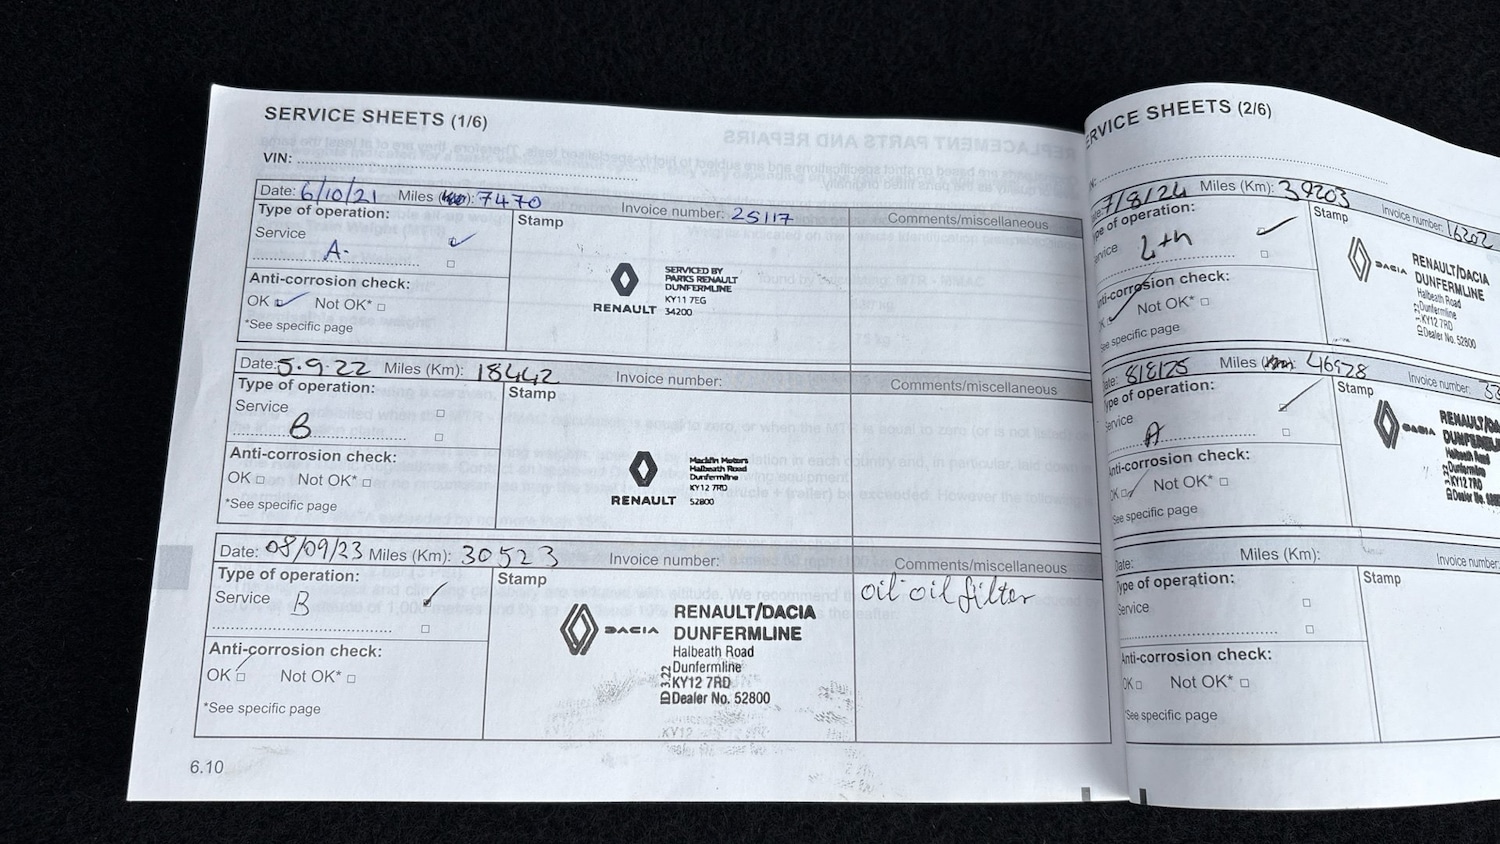 SERVICE SHEETS (1/6)
VIN:
Date: 6/10/21 Miles (Km): 7470 Invoice number: 25117 Comments/miscellaneous
Type of operation: Stamp
Service
A.
Anti-corrosion check:
OK Not OK*
*See specific page
RENAULT
SERVICED BY
PARKS RENAULT
DUNFERMLINE
KY11 7EG
34200
Date: 5.9.22 Miles (Km): 18442 Invoice number: Comments/miscellaneous
Type of operation: Stamp
Service
B
Anti-corrosion check:
OK Not OK*
*See specific page
RENAULT
Macklin Motors
Halbeath Road
Dunfermline
KY12 7RD
52800
Date: 08/09/23 Miles (Km): 30523 Invoice number: Comments/miscellaneous
Type of operation: Stamp
Service B
Anti-corrosion check:
OK Not OK*
*See specific page
DACIA
RENAULT/DACIA
DUNFERMLINE
Halbeath Road
Dunfermline
KY12 7RD
Dealer No. 52800
ID 3.22
oil oil filter
6.10
ERVICE SHEETS (2/6)
7/8/24 Miles (Km): 39203 Invoice number: 16202
ype of operation: Stamp
ervice 4th
nti-corrosion check:
Not OK*
See specific page
DACIA
RENAULT/DACIA
DUNFERMLINE
Halbeath Road
Dunfermline
KY12 7RD
Dealer No. 52800
ate: 8/8/25 Miles (Km): 46928 Invoice number:
Type of operation: Stamp
ervice
A
Anti-corrosion check:
OK Not OK*
See specific page
DACIA
Halbeath Road
Dunfermline
KY12 7RD
Date: Miles (Km): Invoice number:
Type of operation: Stamp
Service
Anti-corrosion check:
OK Not OK*
*See specific page